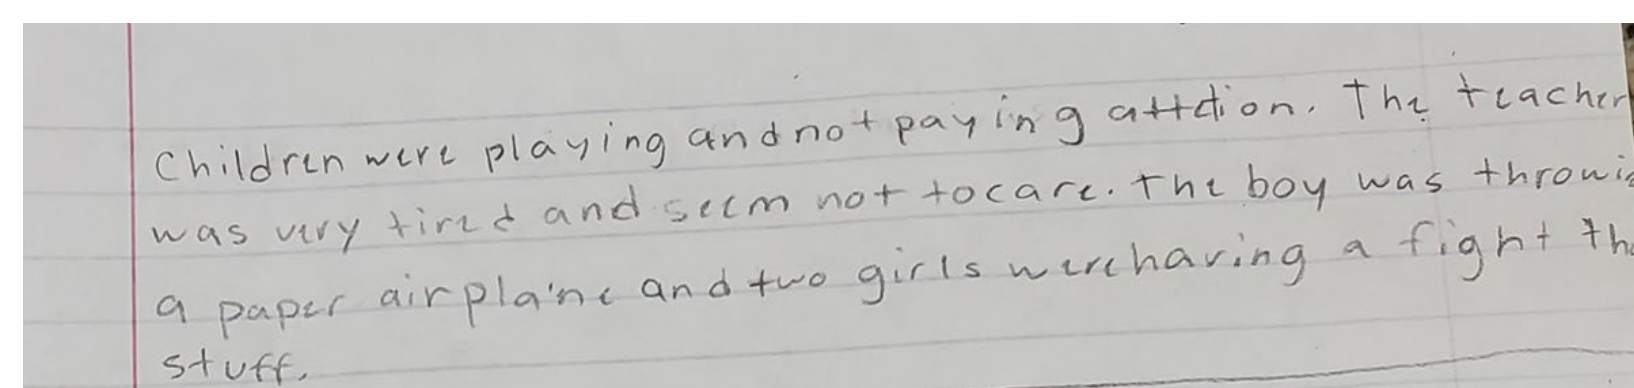 Children were playing and not paying attdion. The teacher
was very tired and seem not to care. The boy was throwi
a paper airplane and two girls were having a fight
stuff.